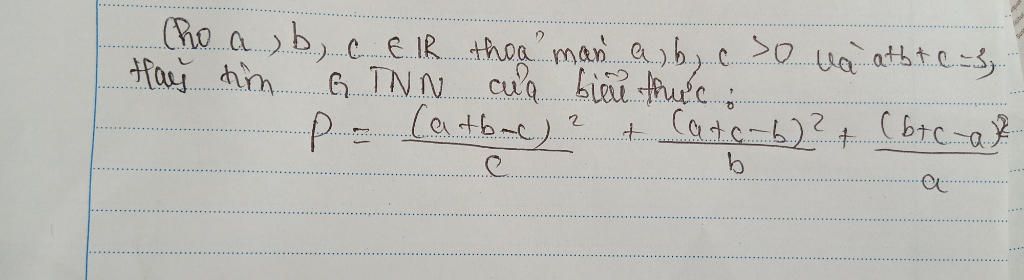 Cho a, b, c ∈ IR thoả mãn a, b, c > 0 và a+b+c = 3,
Hãy tìm GTNN của biểu thức :
P = (a+b-c)²/c + (a+c-b)²/b + (b+c-a)²/a